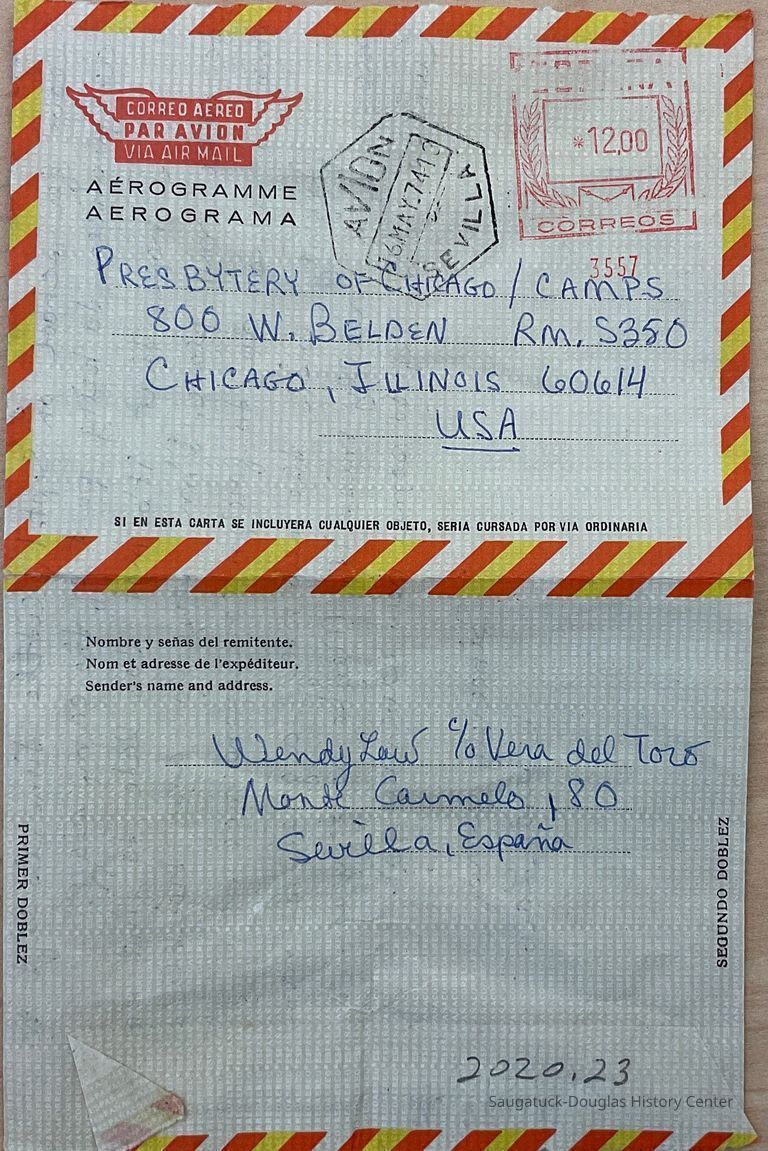 CORREO AEREO
PAR AVION
VIA AIR MAIL
AÉROGRAMME
AEROGRAMA
AVION
16 MAY.74 13
SEVILLA
*12,00
CORREOS
3557
PRESBYTERY OF CHICAGO / CAMPS
800 W. BELDEN RM. S350
CHICAGO, ILLINOIS 60614
USA
SI EN ESTA CARTA SE INCLUYERA CUALQUIER OBJETO, SERIA CURSADA POR VIA ORDINARIA
Nombre y señas del remitente.
Nom et adresse de l'expéditeur.
Sender's name and address.
Wendy Law c/o Vera del Toro
Monte Carmelo, 80
Sevilla, España
PRIMER DOBLEZ
SEGUNDO DOBLEZ
2020.23
Saugatuck-Douglas History Center